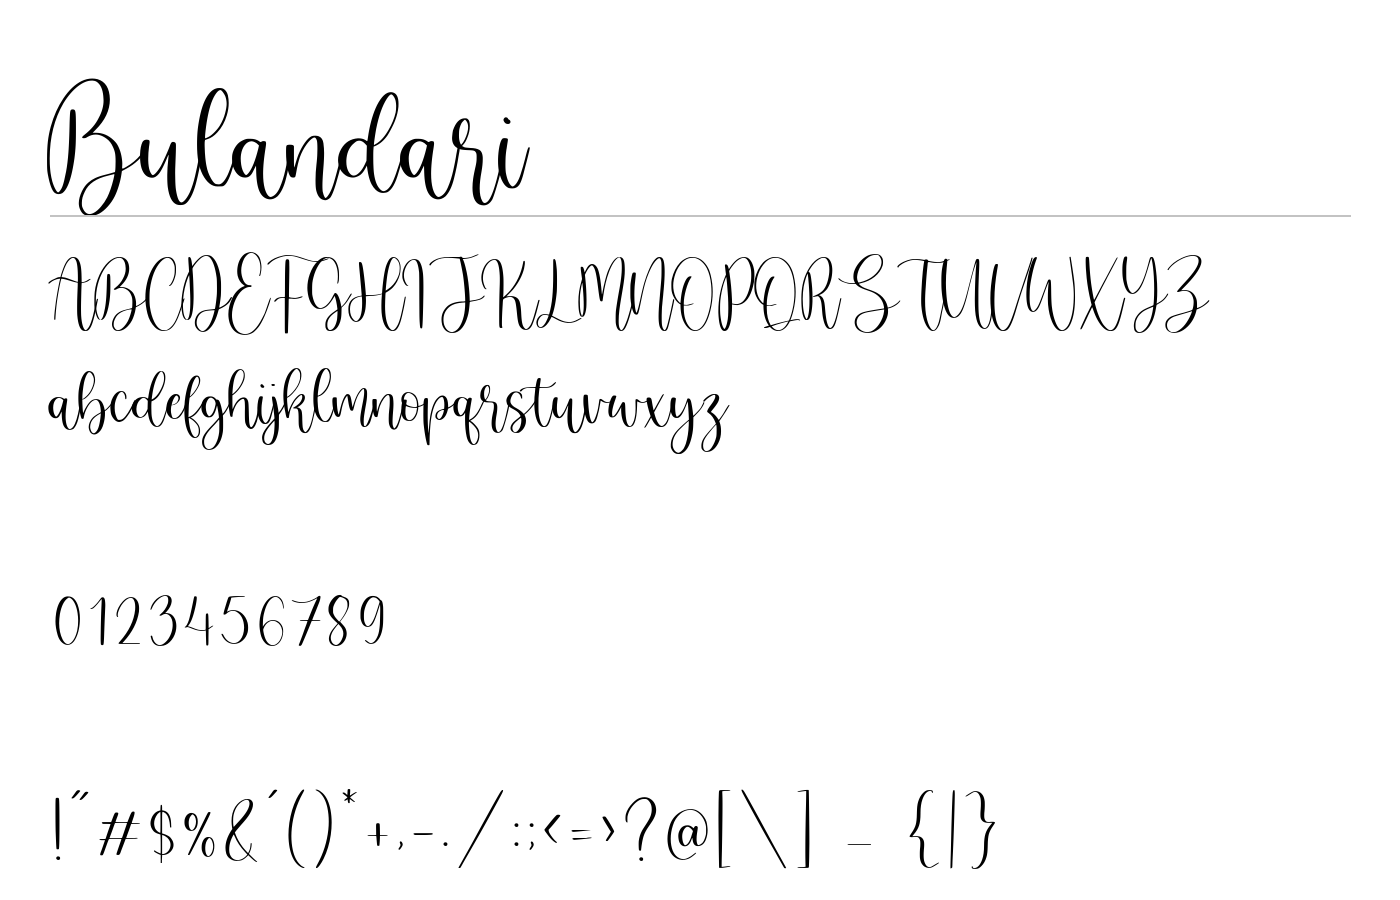 Bulandari
ABCDEFGHIJKLMNOPQRSTUVWXYZ
abcdefghijklmnopqrstuvwxyz
0123456789
!"#$%&'()*+,-./:;<=>?@[\] _ {|}